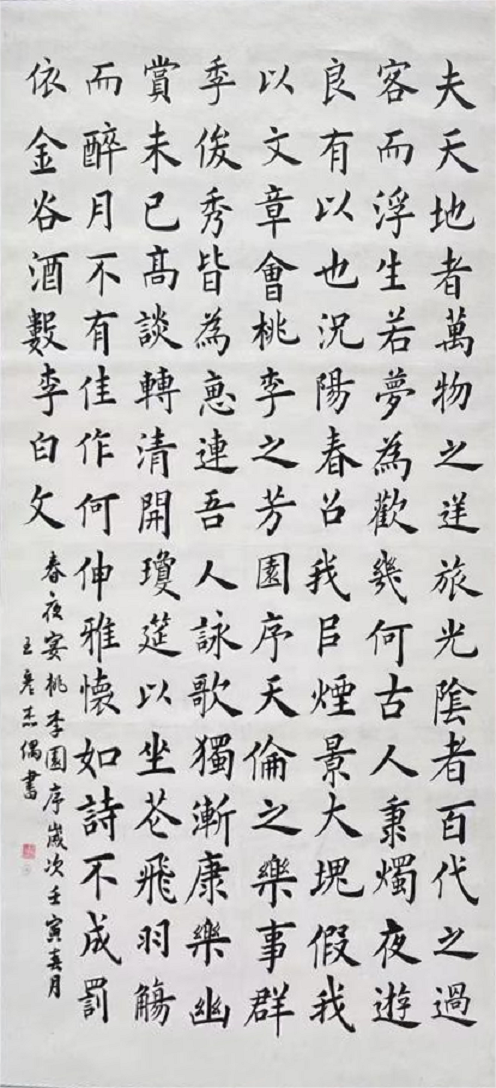 夫天地者萬物之逆旅光陰者百代之過
客而浮生若夢為歡幾何古人秉燭夜遊
良有以也況陽春召我㠯煙景大塊假我
以文章會桃李之芳園序天倫之樂事群
季俊秀皆為惠連吾人詠歌獨漸康樂幽
賞未已高談轉清開瓊筵以坐花飛羽觴
而醉月不有佳作何伸雅懷如詩不成罰
依金谷酒數李白文
春夜宴桃李園序歲次壬寅春月
王彥杰偶書